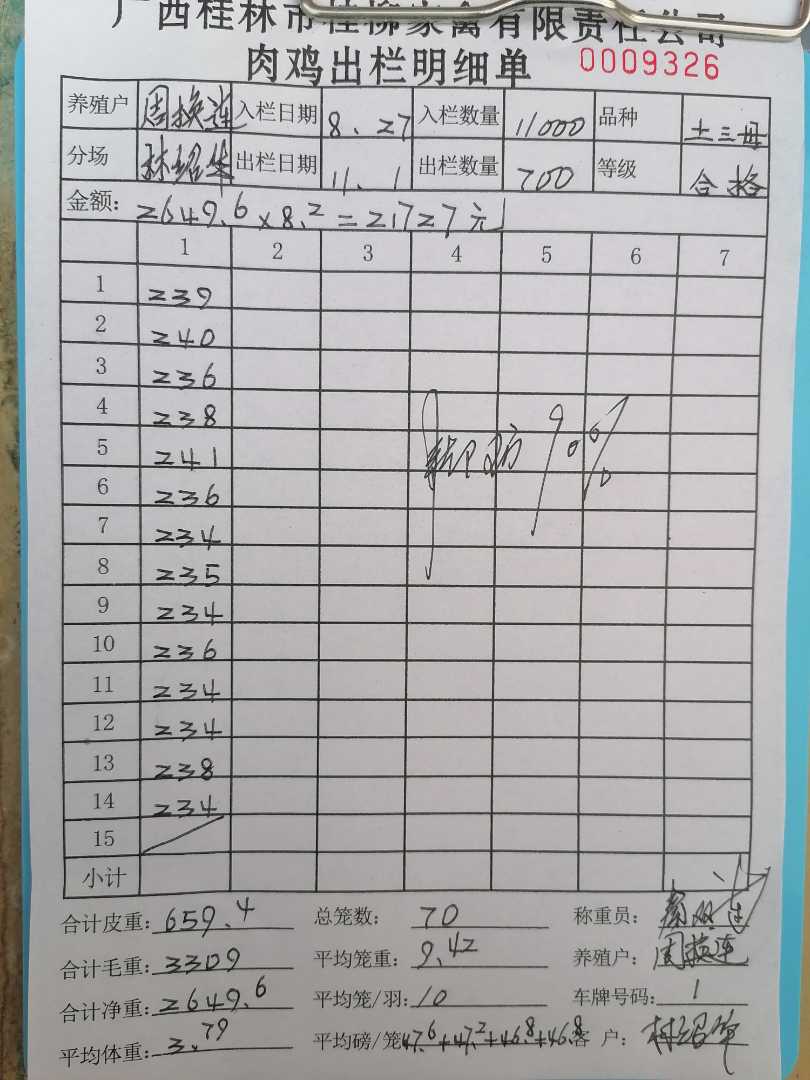 广西桂林市桂柳家禽有限责任公司
肉鸡出栏明细单 0009326
养殖户 周换连 入栏日期 8.27 入栏数量 11000 品种 土三毋
分场 林绍华 出栏日期 11.1 出栏数量 700 等级 合格
金额: 2649.6×8.2=21727元
1 2 3 4 5 6 7
1 239
2 240
3 236
4 238
5 241
6 236
7 234
8 235
9 234
10 236
11 234
12 234
13 238
14 234
15
小计
合计皮重: 659.4 总笼数: 70 称重员:
合计毛重: 3309 平均笼重: 9.42 养殖户: 周换连
合计净重: 2649.6 平均笼/羽: 10 车牌号码: 1
平均体重: 3.79 平均磅/笼 47.6+47.2+46.8+46.8 客户: 林绍华